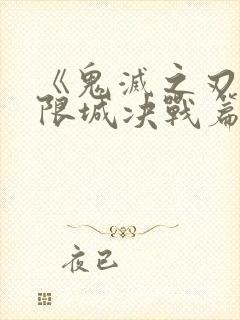 《鬼滅之刃
限城决戰篇
夜已